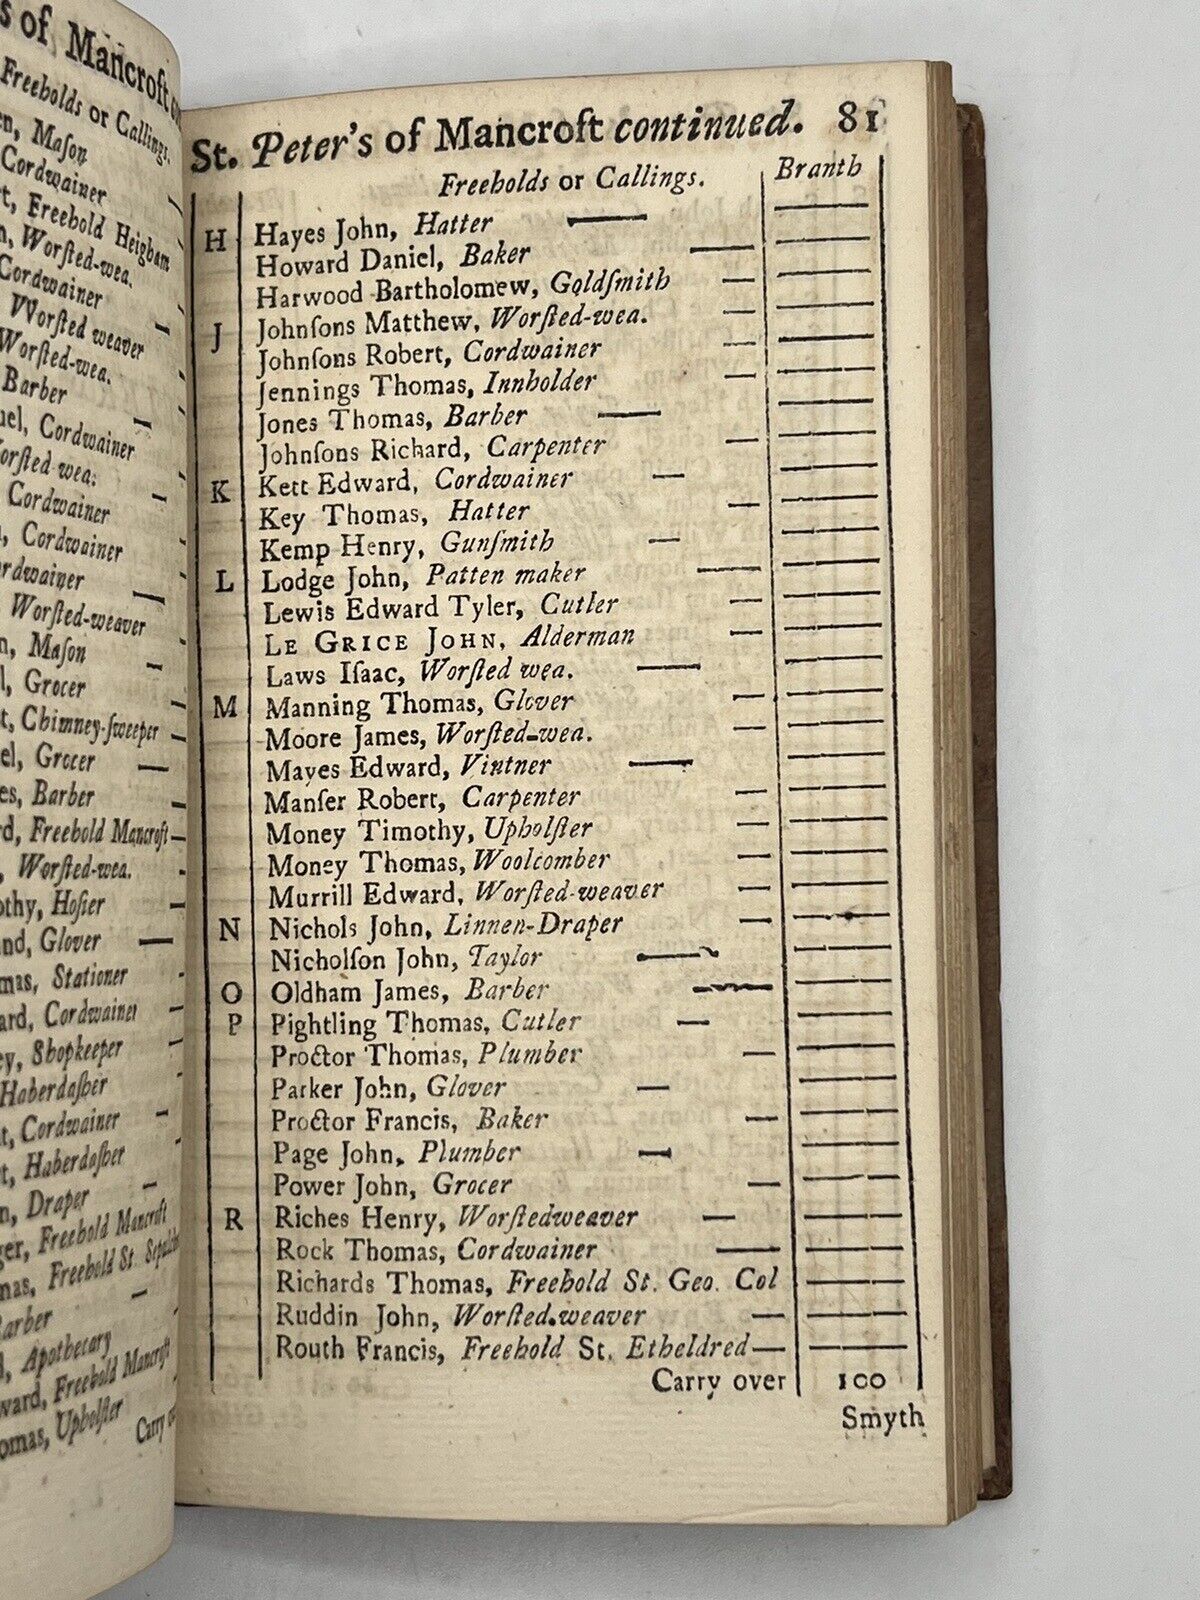 s of Mancroft
Freeholds or Callings.
Maſon
Cordwainer
Freebold Heigham
Worſted-wea.
Cordwainer
Worſted weaver
Worſted-wea.
Barber
Cordwainer
wea.
Cordwainer
Cordwainer
Worſted-weaver
Maſon
Grocer
Chimney-ſweeper
Grocer
Barber
Freebold Mancroft
Worſted-wea.
Hoſier
Glover
Stationer
Cordwainer
Shopkeeper
Haberdaſher
Cordwainer
Haberdaſher
Draper
Freebold Mancroft
Freebold St.
Apothecary
Freebold Mancroft
Upholſter
Carry
St. Peter's of Mancroft continued. 81
Freeholds or Callings. Branth
H Hayes John, Hatter
Howard Daniel, Baker
Harwood Bartholomew, Goldſmith
J Johnſons Matthew, Worſted-wea.
Johnſons Robert, Cordwainer
Jennings Thomas, Innholder
Jones Thomas, Barber
Johnſons Richard, Carpenter
K Kett Edward, Cordwainer
Key Thomas, Hatter
Kemp Henry, Gunſmith
L Lodge John, Patten maker
Lewis Edward Tyler, Cutler
LE GRICE JOHN, Alderman
Laws Iſaac, Worſted wea.
M Manning Thomas, Glover
Moore James, Worſted-wea.
Mayes Edward, Vintner
Manſer Robert, Carpenter
Money Timothy, Upholſter
Money Thomas, Woolcomber
Murrill Edward, Worſted-weaver
N Nichols John, Linnen-Draper
Nicholſon John, Taylor
O Oldham James, Barber
P Pightling Thomas, Cutler
Proctor Thomas, Plumber
Parker John, Glover
Proctor Francis, Baker
Page John, Plumber
Power John, Grocer
R Riches Henry, Worſtedweaver
Rock Thomas, Cordwainer
Richards Thomas, Freehold St. Geo. Col
Ruddin John, Worſted-weaver
Routh Francis, Freehold St. Etheldred
Carry over 100
Smyth